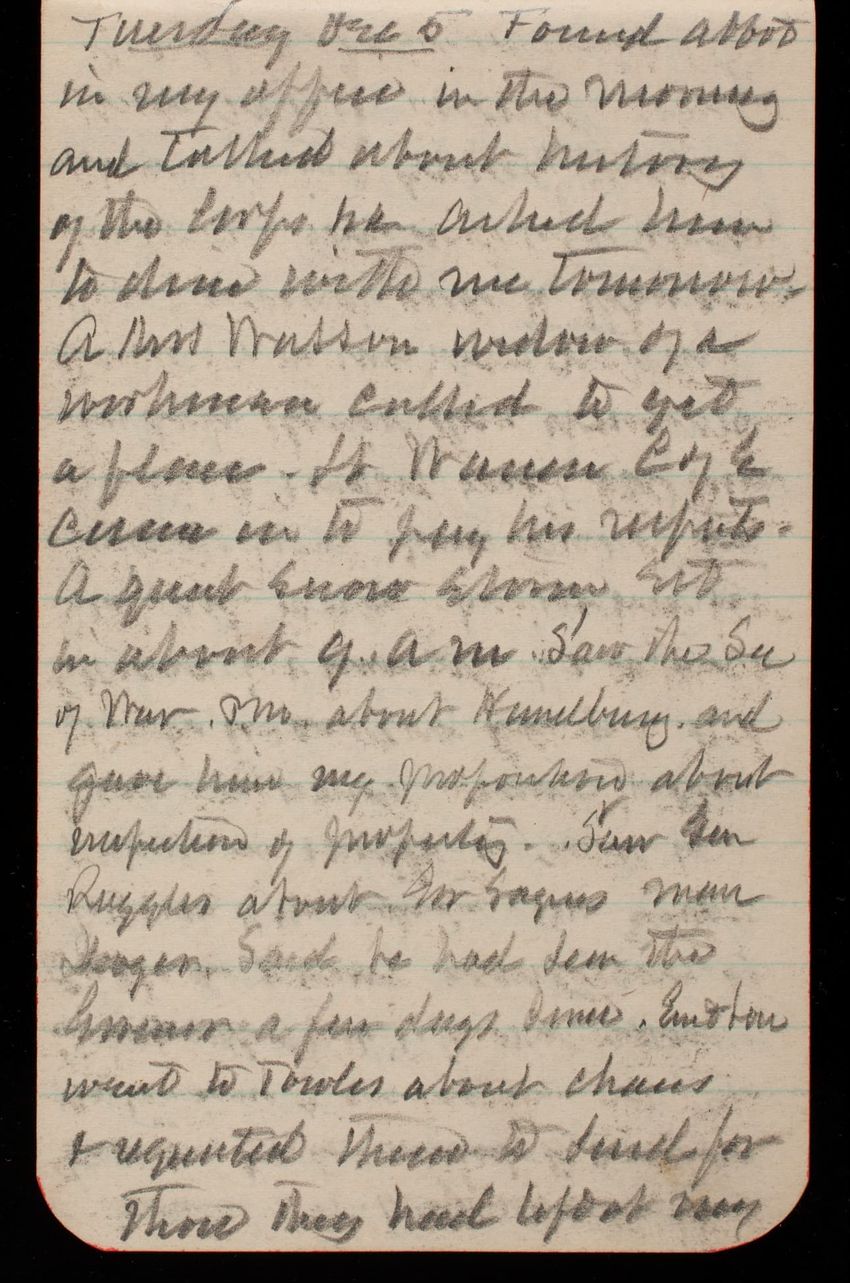 Tuesday Dec 5 Found Abbot
in my office in the morning
and talked about history
of the Corps he asked him
to dine with me tomorrow.
A Mrs Watson widow of a
workman called to get
a place. Lt Warren C of E
came in to pay his respects.
A great snow storm set
in about 9. a m. Saw the Sec
of War. about and
gave him my proposition about
inspection of property. Saw Gen
Ruggles about Gov man
Said he had seen the
Governor a few days since.
went to Towles about chairs
& requested them to send for
those they had left at my